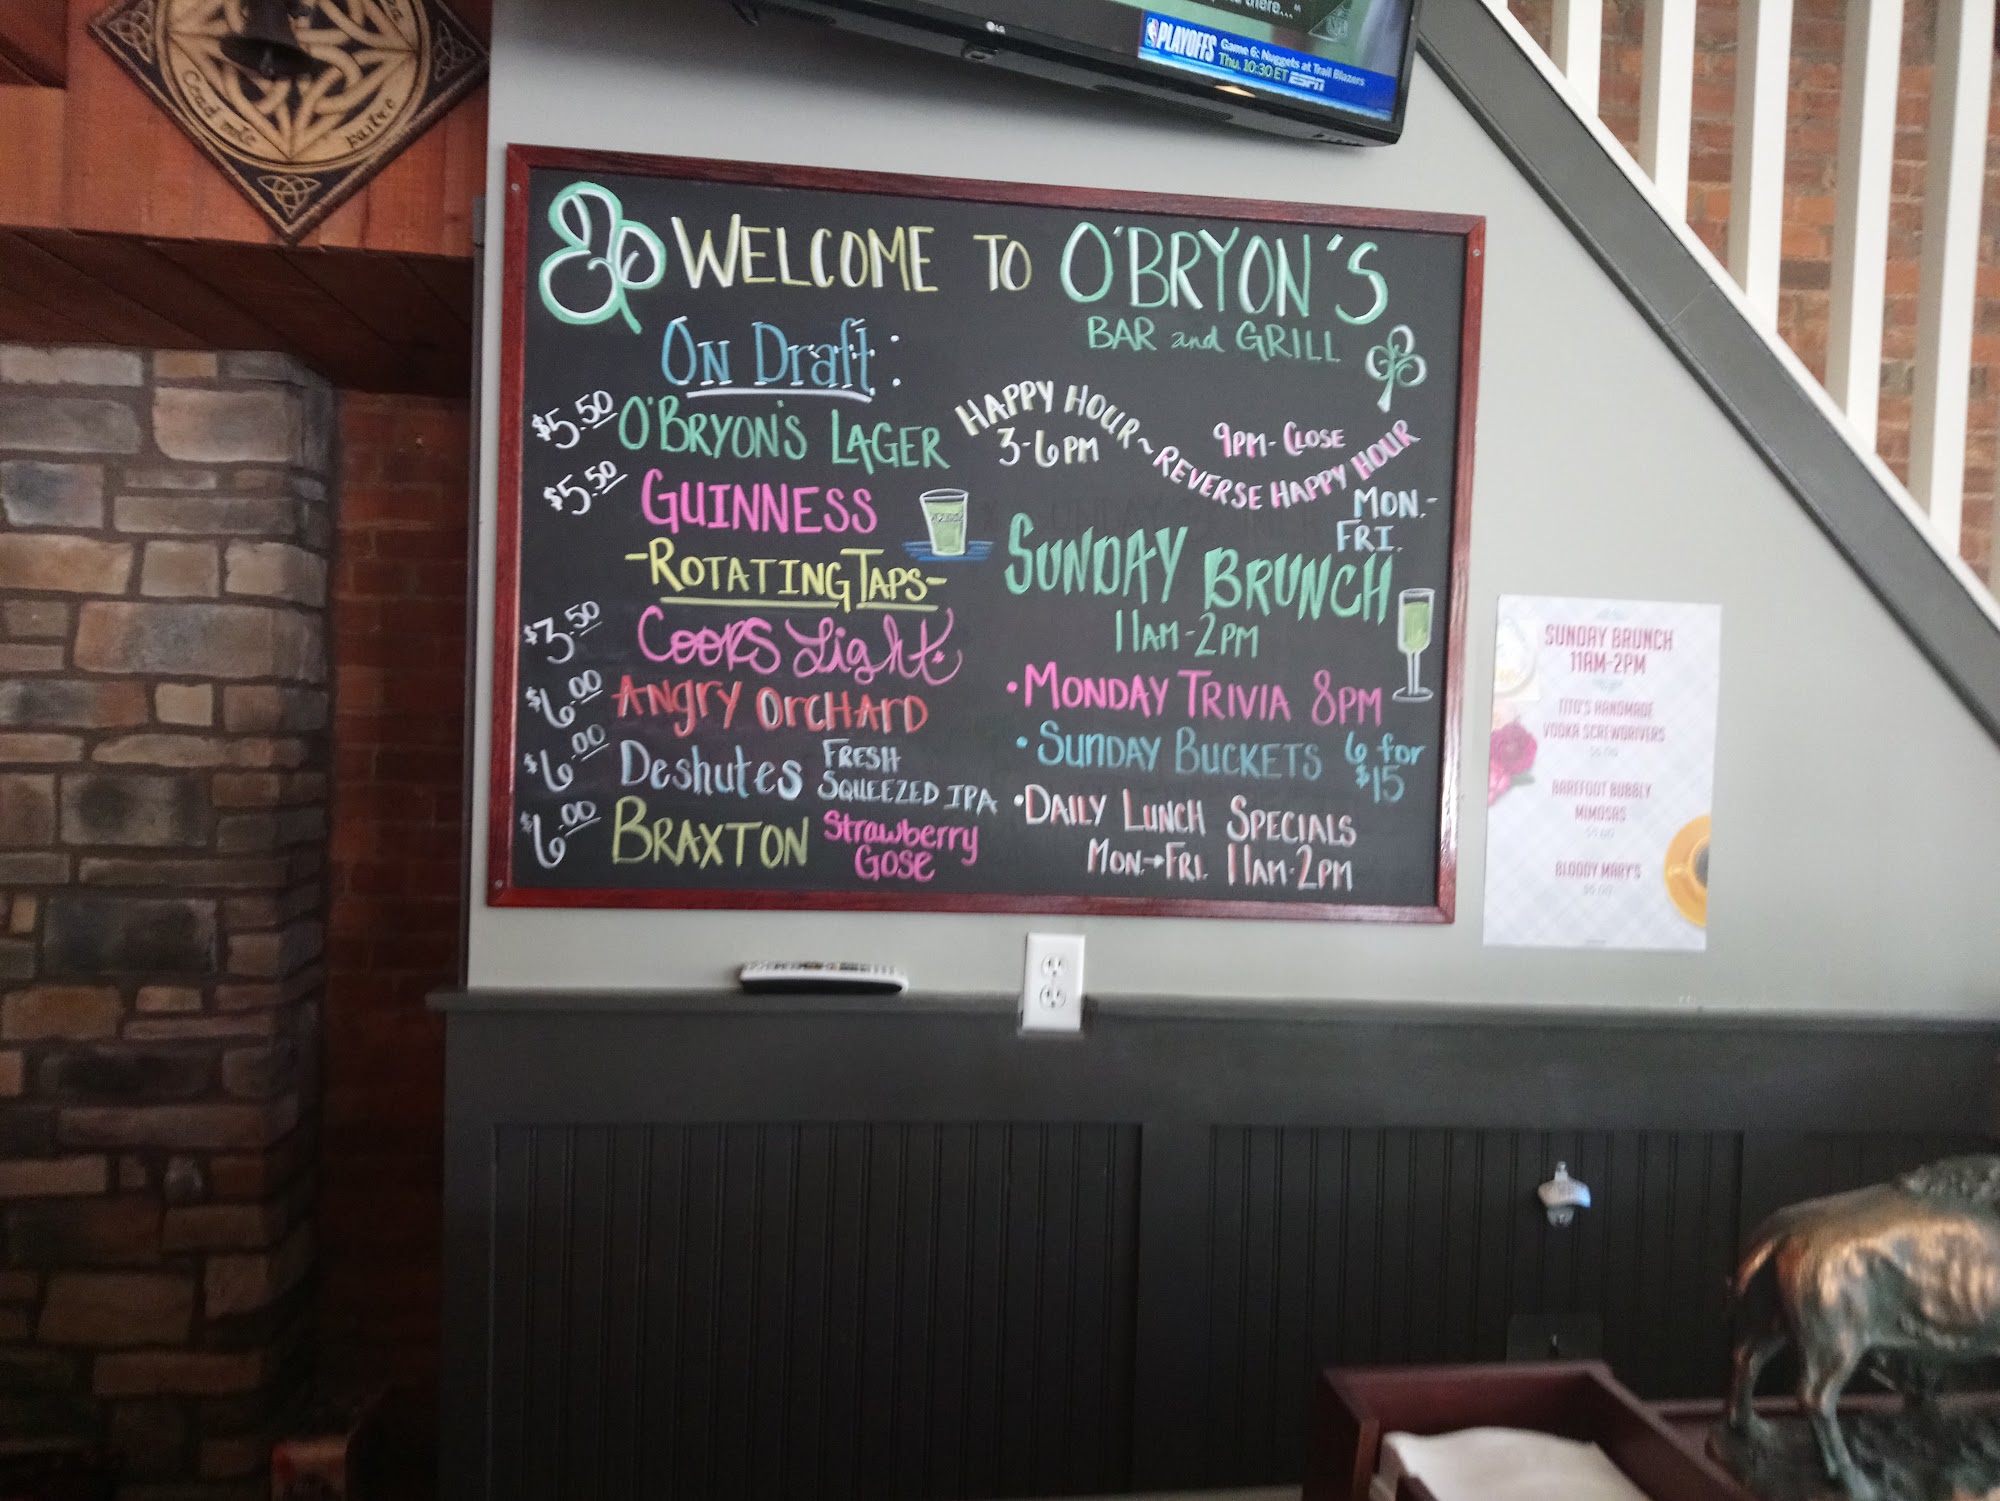 there..."
NBA PLAYOFFS
Game 6: Nuggets at Trail Blazers
Thu. 10:30 ET ESPN
LG
Cead mile
failte
WELCOME TO O'BRYON'S
BAR and GRILL
On Draft:
$5.50 O'BRYON'S LAGER
$5.50 GUINNESS
-ROTATING TAPS-
$3.50 Coors Light
$6.00 ANGRY ORCHARD
$6.00 Deshutes FRESH
SQUEEZED IPA
$6.00 BRAXTON Strawberry
Gose
HAPPY HOUR~REVERSE HAPPY HOUR
3-6PM
9PM-CLOSE
MON.-
FRI.
SUNDAY BRUNCH
11AM-2PM
•MONDAY TRIVIA 8PM
•SUNDAY BUCKETS 6 for
$15
•DAILY LUNCH SPECIALS
MON.→FRI. 11AM-2PM
SUNDAY BRUNCH
11AM-2PM
TITO'S HANDMADE
VODKA SCREWDRIVERS
BAREFOOT BUBBLY
MIMOSAS
BLOODY MARY'S